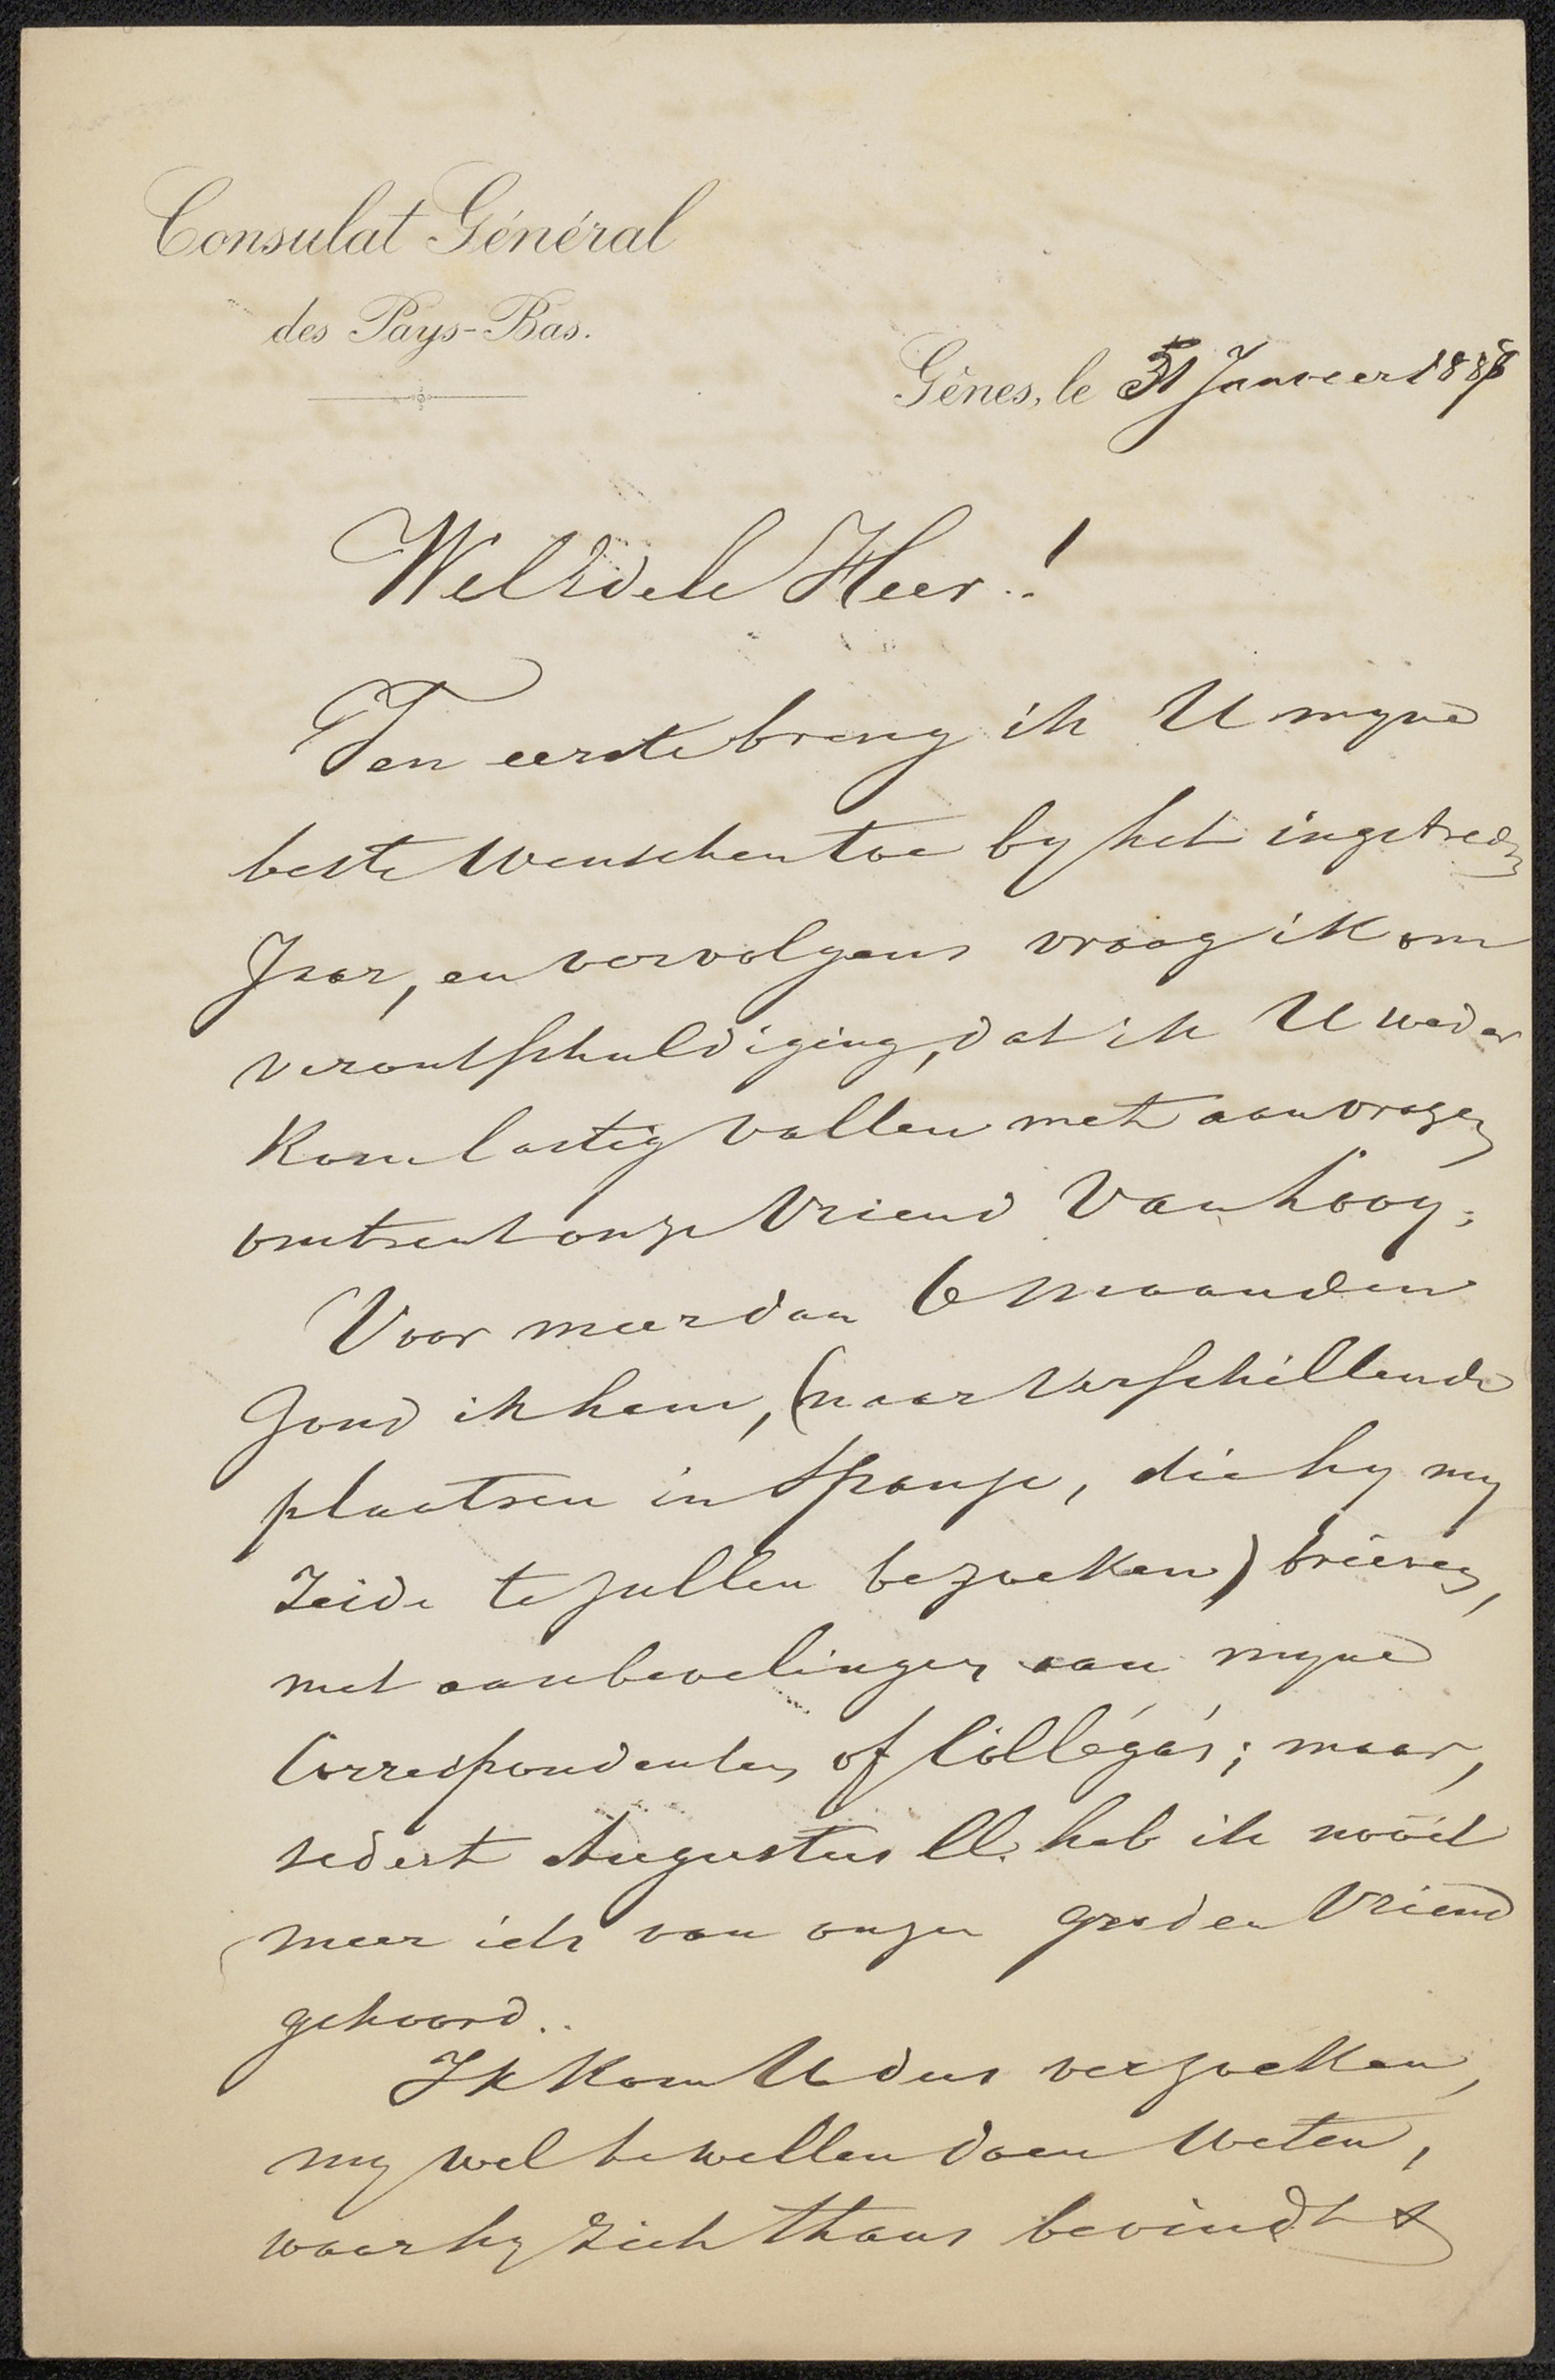 Consulat Général
des Pays-Bas.
Gênes, le 31 Januari 1888
WelEdele Heer!
Ten eerste breng ik U myne
beste wenschen toe by het ingetreden
Jaar, en vervolgens vraag ik om
verontschuldiging, dat ik U weder
kom lastig vallen met aanvragen
omtrent onze Vriend Van Looy;
Voor meer dan 6 maanden
zond ik hem, (naar verschillende
plaatsen in Spanje, die hy my
zeide te zullen bezoeken) brieven,
met aanbevelingen aan myne
Correspondenten of Collégás; maar,
sedert Augustus ll. heb ik nooit
meer iets van onzen goeden Vriend
gehoord..
Ik kom U dus verzoeken,
my wel te willen doen weten,
waar hy zich thans bevindt &